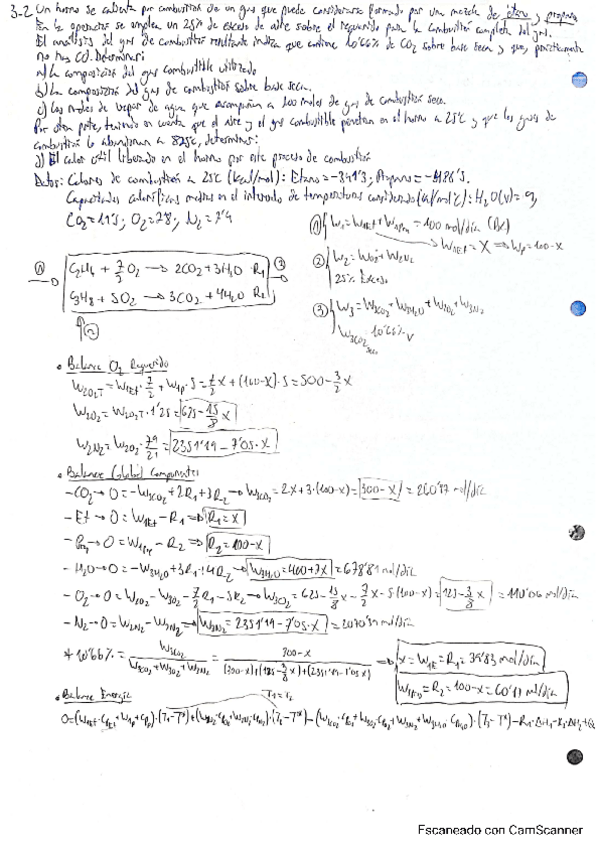 3-2 Un horno se calienta por combustión de un gas que puede considerarse formado por una mezcla de etano y propano
En la operación se emplea un 25% de exceso de aire sobre el requerido para la combustión completa del gas.
El análisis del gas de combustión resultante indica que contiene 10'66% de CO2 sobre base seca y que, prácticamente
no hay CO. Determinar:
a) La composición del gas combustible utilizado
b) La composición del gas de combustión sobre base seca.
c) Los moles de vapor de agua que acompañan a 100 moles de gas de combustión seco.
Por otra parte, teniendo en cuenta que el aire y el gas combustible penetran en el horno a 25ºC y que los gases de
combustión lo abandonan a 825ºC, determinar:
d) El calor útil liberado en el horno por este proceso de combustión
Datos: Calores de combustión a 25ºC (kcal/mol): Etano = -341'3; Propano = -486'3.
Capacidades caloríficas medias en el intervalo de temperaturas considerado (cal/molºC): H2O(v) = 9,
CO2 = 11'3; O2 = 7'8; N2 = 7'4
① W1 = W1Et + W1Pro = 100 mol/día (BC)
W1Et = X → W1P = 100-X
② W2 = WO2 + W2N2
25% Exceso
③ W3 = W3CO2 + W3H2O + W3O2 + W3N2
W3CO2 seco 10'66% V
① C2H6 + 7/2 O2 → 2CO2 + 3H2O R1 ③
C3H8 + 5O2 → 3CO2 + 4H2O R2
②
• Balance O2 Requerido
W2O2T = W1Et · 7/2 + W1P · 5 = 7/2 x + (100-x) · 5 = 500 - 3/2 x
W2O2 = W2O2T · 1'25 = 625 - 15/8 x
W2N2 = W2O2 · 79/21 = 2351'19 - 7'05 · x
• Balance Global Componentes
- CO2 → 0 = -W3CO2 + 2R1 + 3R2 → W3CO2 = 2·x + 3·(100-x) = 300-x = 260'17 mol/día
- Et → 0 = W1Et - R1 ⇒ R1 = x
- Pro → 0 = W1Pr - R2 ⇒ R2 = 100-x
- H2O → 0 = -W3H2O + 3R1 + 4R2 → W3H2O = 400 + 7x
- O2 → 0 = W2O2 - W3O2 - 7/2 R1 - 5R2 → W3O2 = 625 - 15/8 x - 7/2 x - 5(100-x) = 125 - 3/8 x
- N2 → 0 = W2N2 - W3N2 ⇒ W3N2 = 2351'19 - 7'05 · x
* 10'66% = W3CO2 / (W3CO2 + W3O2 + W3N2) = (300-x) / ((300-x) + (125 - 3/8 x) + (2351'19 - 7'05x)) ⇒ x = W1E = R1 = 39'83 mol/día
W1Pro = R2 = 100-x = 60'17 mol/día
• Balance Energía
T1 = T2
Escaneado con CamScanner